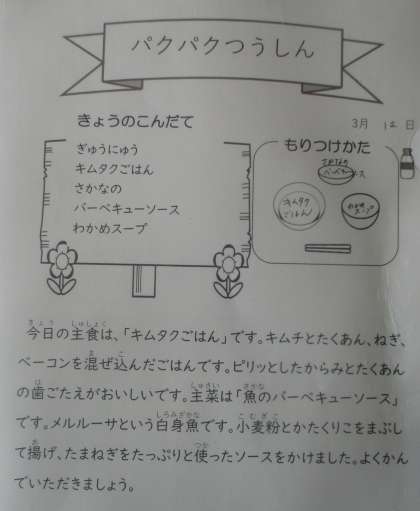 パクパクつうしん
きょうのこんだて
ぎゅうにゅう
キムタクごはん
さかなの
バーベキューソース
わかめスープ
3月 12 日
もりつけかた
さかなの
バーベキューソース
キムタク
ごはん
わかめ
スープ
今日の主食は、「キムタクごはん」です。キムチとたくあん、ねぎ、
ベーコンを混ぜ込んだごはんです。ピリッとしたからみとたくあん
の歯ごたえがおいしいです。主菜は「魚のバーベキューソース」
です。メルルーサという白身魚です。小麦粉とかたくりこをまぶし
て揚げ、たまねぎをたっぷりと使ったソースをかけました。よくかん
でいただきましょう。